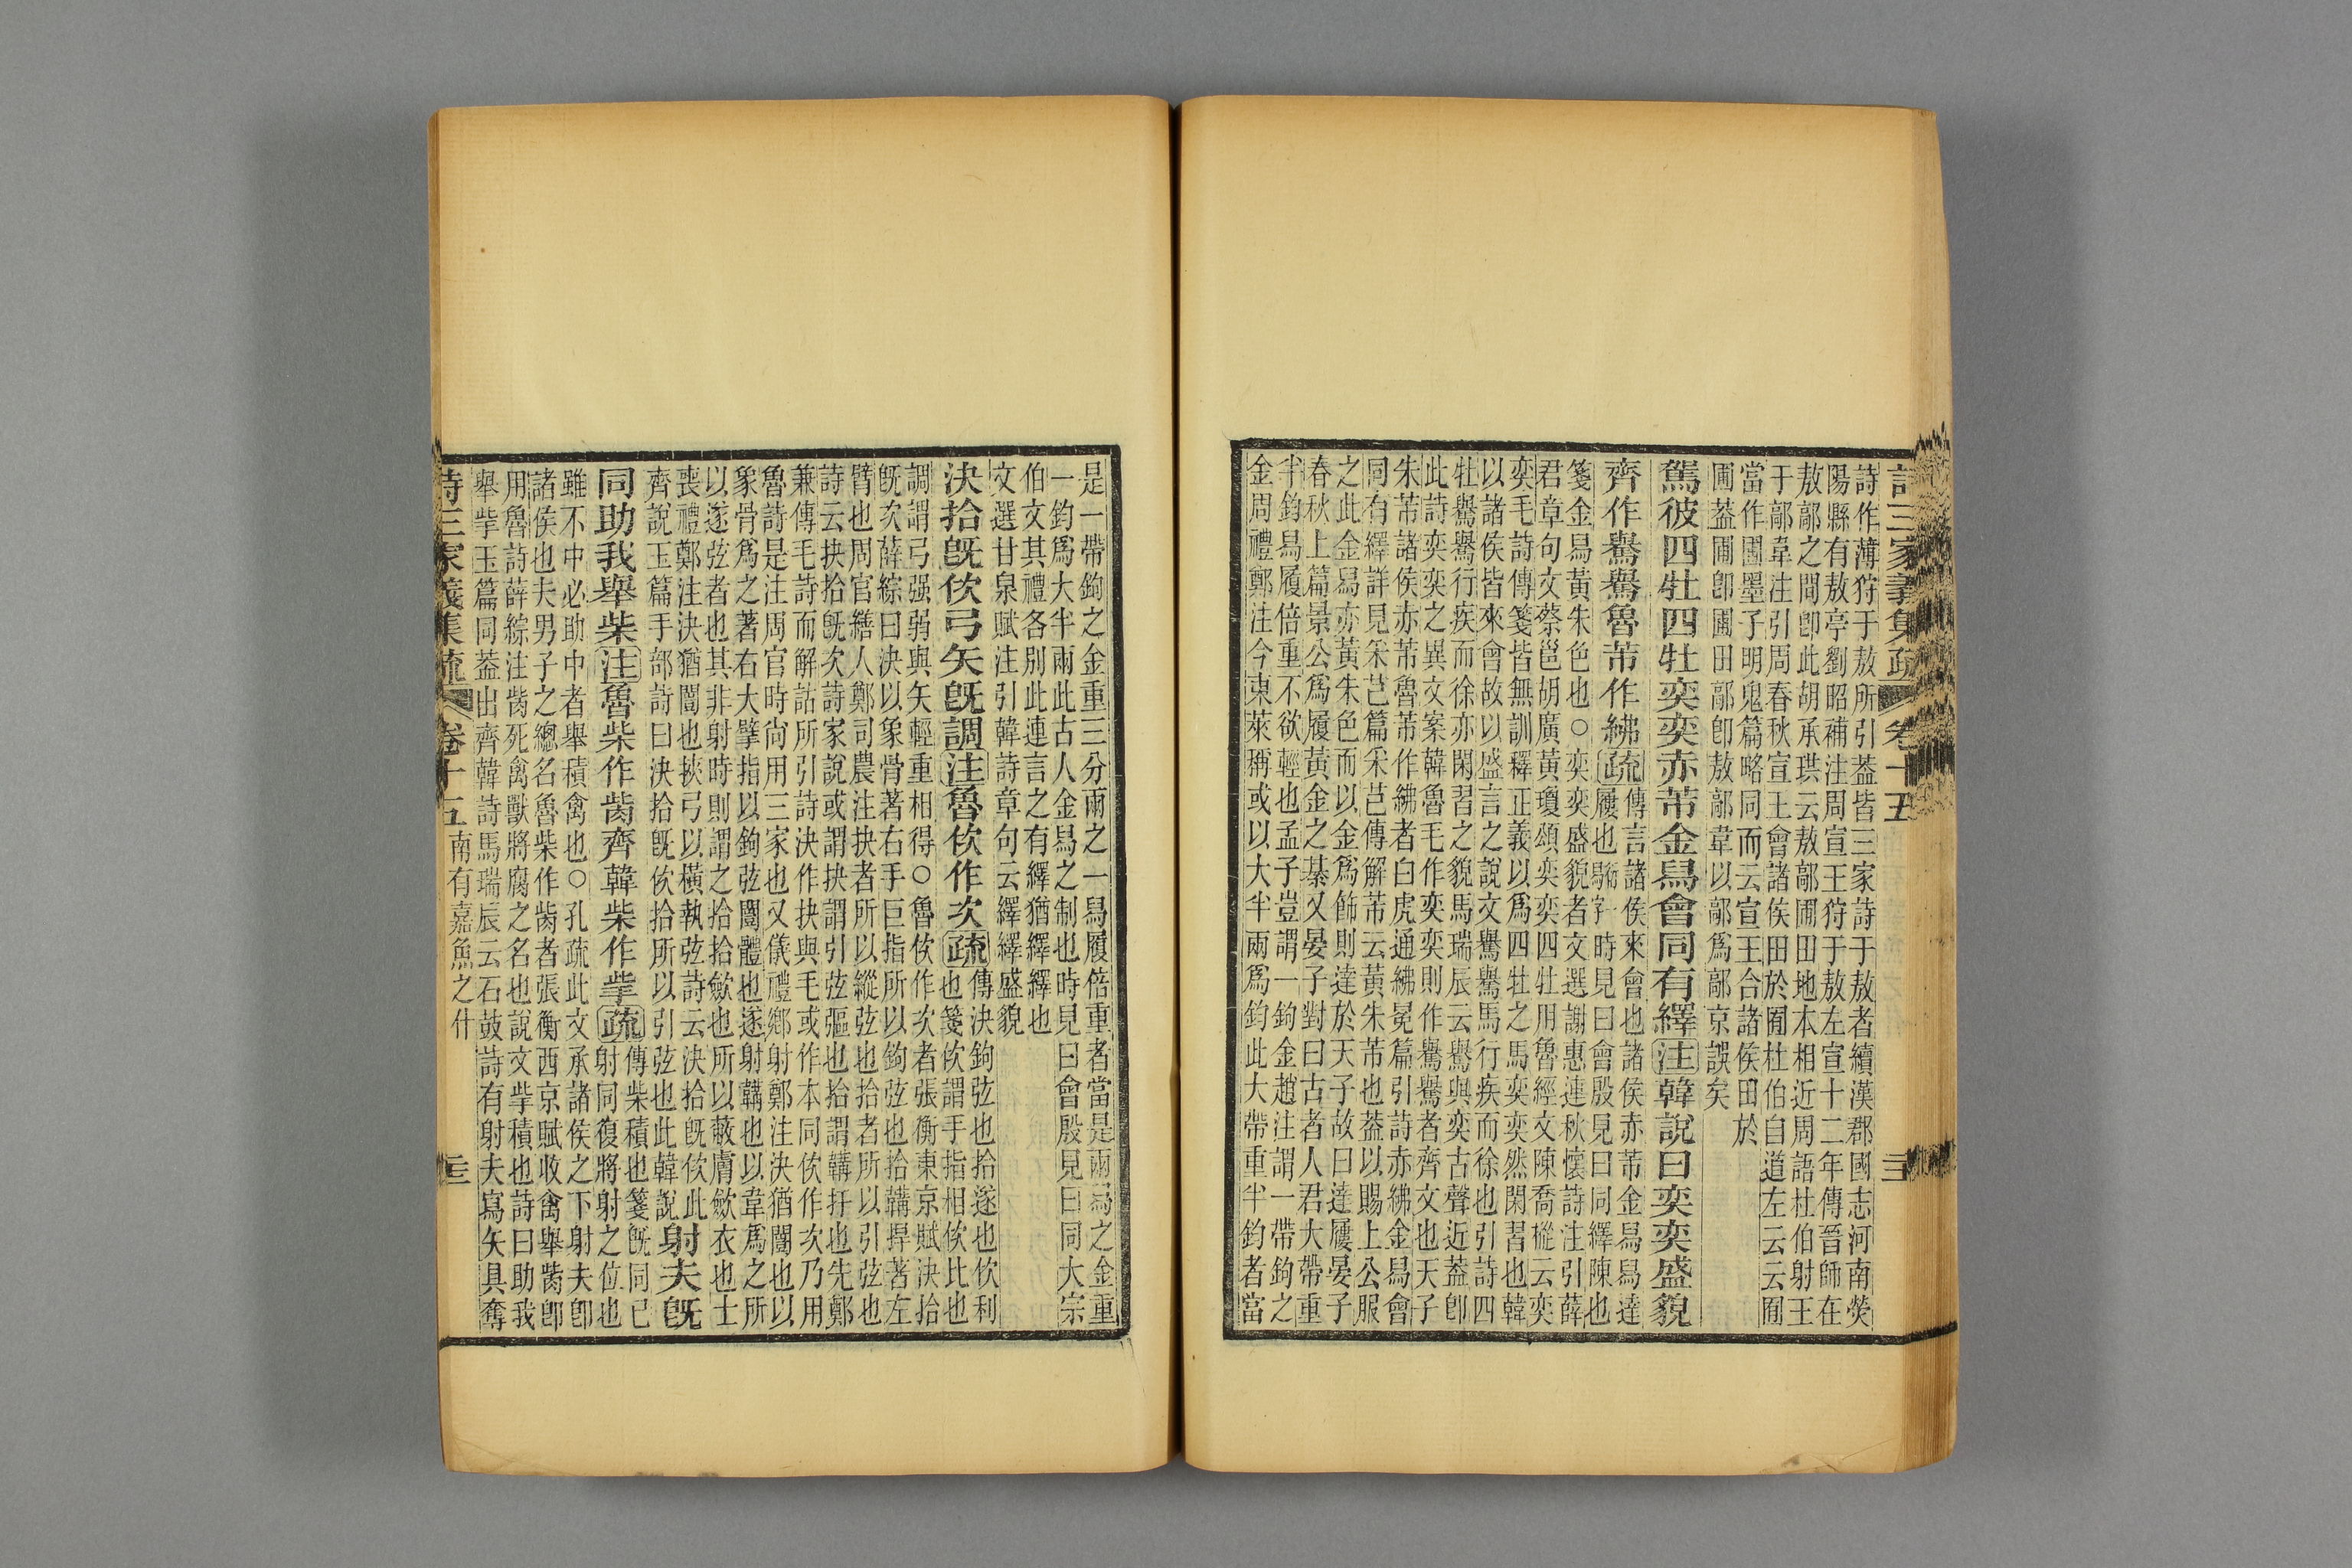 詩三家義集疏 卷十五 三
詩作薄狩于敖所引葢皆三家詩于敖者續漢郡國志河南熒
陽縣有敖亭劉昭補注周宣王狩于敖左宣十二年傳晉師在
敖鄗之間卽此胡承珙云敖鄗圃田地本相近周語杜伯射王
于鄗韋注引周春秋宣王會諸侯田於圃杜伯自道左云云圃
當作圃墨子明鬼篇略同而云宣王合諸侯田於
圃葢圃卽圃田鄗卽敖鄗韋以鄗爲鄗京誤矣
駕彼四牡四牡奕奕赤芾金舄會同有繹注韓說曰奕奕盛貌
齊作鸒鸒魯芾作紼疏
傳言諸侯來會也諸侯赤芾金舄舄達
屨也時見曰會殷見曰同繹陳也
箋金舄黃朱色也○奕奕盛貌者文選謝惠連秋懷詩注引薛
君章句文蔡邕胡廣黃瓊頌奕奕四牡用魯經文陳喬樅云奕
奕毛詩傳箋皆無訓釋正義以爲四牡之馬奕奕然閑習也韓
以諸侯皆來會故以盛言之說文鸒鸒馬行疾而徐也引詩四
牡鸒鸒行疾而徐亦閑習之貌馬瑞辰云鸒與奕古聲近葢卽
此詩奕奕之異文案韓魯毛作奕奕則作鸒鸒者齊文也天子
朱芾諸侯赤芾魯芾作紼者白虎通紼冕篇引詩赤紼金舄會
同有繹詳見采芑篇采芑傳解芾云黃朱芾也葢以賜上公服
之此金舄亦黃朱色而以金爲飾則達於天子故曰達屨晏子
春秋上篇景公爲履黃金之綦又晏子對曰古者人君大帶重
半鈞舄履倍重不欲輕也孟子豈謂一鉤金趙注謂一帶鉤之
金周禮鄭注今東萊稱或以大半兩爲鈞此大帶重半鈞者當
是一帶鉤之金重三分兩之一舄履倍重者當是兩舄之金重
一鈞爲大半兩此古人金舄之制也時見曰會殷見曰同大宗
伯文其禮各別此連言之有繹猶繹繹也
文選甘泉賦注引韓詩章句云繹繹盛貌
決拾旣佽弓矢旣調注魯佽作次疏
傳決鉤弦也拾遂也佽利
也箋佽謂手指相佽比也
調謂弓强弱與矢輕重相得○魯佽作次者張衡東京賦決拾
旣次薛綜曰決以象骨著右手巨指所以鉤弦也拾韝捍著左
臂也周官繕人鄭司農注抉者所以縱弦也拾者所以引弦也
詩云抉拾旣次詩家說或謂抉謂引弦彄也拾謂韝扞也先鄭
兼傳毛詩而解詁所引詩決作抉與毛或作本同佽作次乃用
魯詩是注周官時尙用三家也又儀禮鄉射鄭注決猶闓也以
象骨爲之著右大擘指以鉤弦闓體也遂射韝也以韋爲之所
以遂弦者也其非射時則謂之拾拾斂也所以蔽膚斂衣也士
喪禮鄭注決猶闓也挾弓以橫執弦詩云決拾旣佽此
齊說玉篇手部詩曰決拾旣佽拾所以引弦也此韓說
射夫旣
同助我舉柴注魯柴作胔齊韓柴作㧘疏
傳柴積也箋旣同已
射同復將射之位也
雖不中必助中者舉積禽也○孔疏此文承諸侯之下射夫卽
諸侯也夫男子之總名魯柴作胔者張衡西京賦收禽舉胔卽
用魯詩薛綜注胔死禽獸將腐之名也說文㧘積也詩曰助我
舉㧘玉篇同葢出齊韓詩馬瑞辰云石鼓詩有射夫寫矢具奪
詩三家義集疏 卷十五 南有嘉魚之什 三